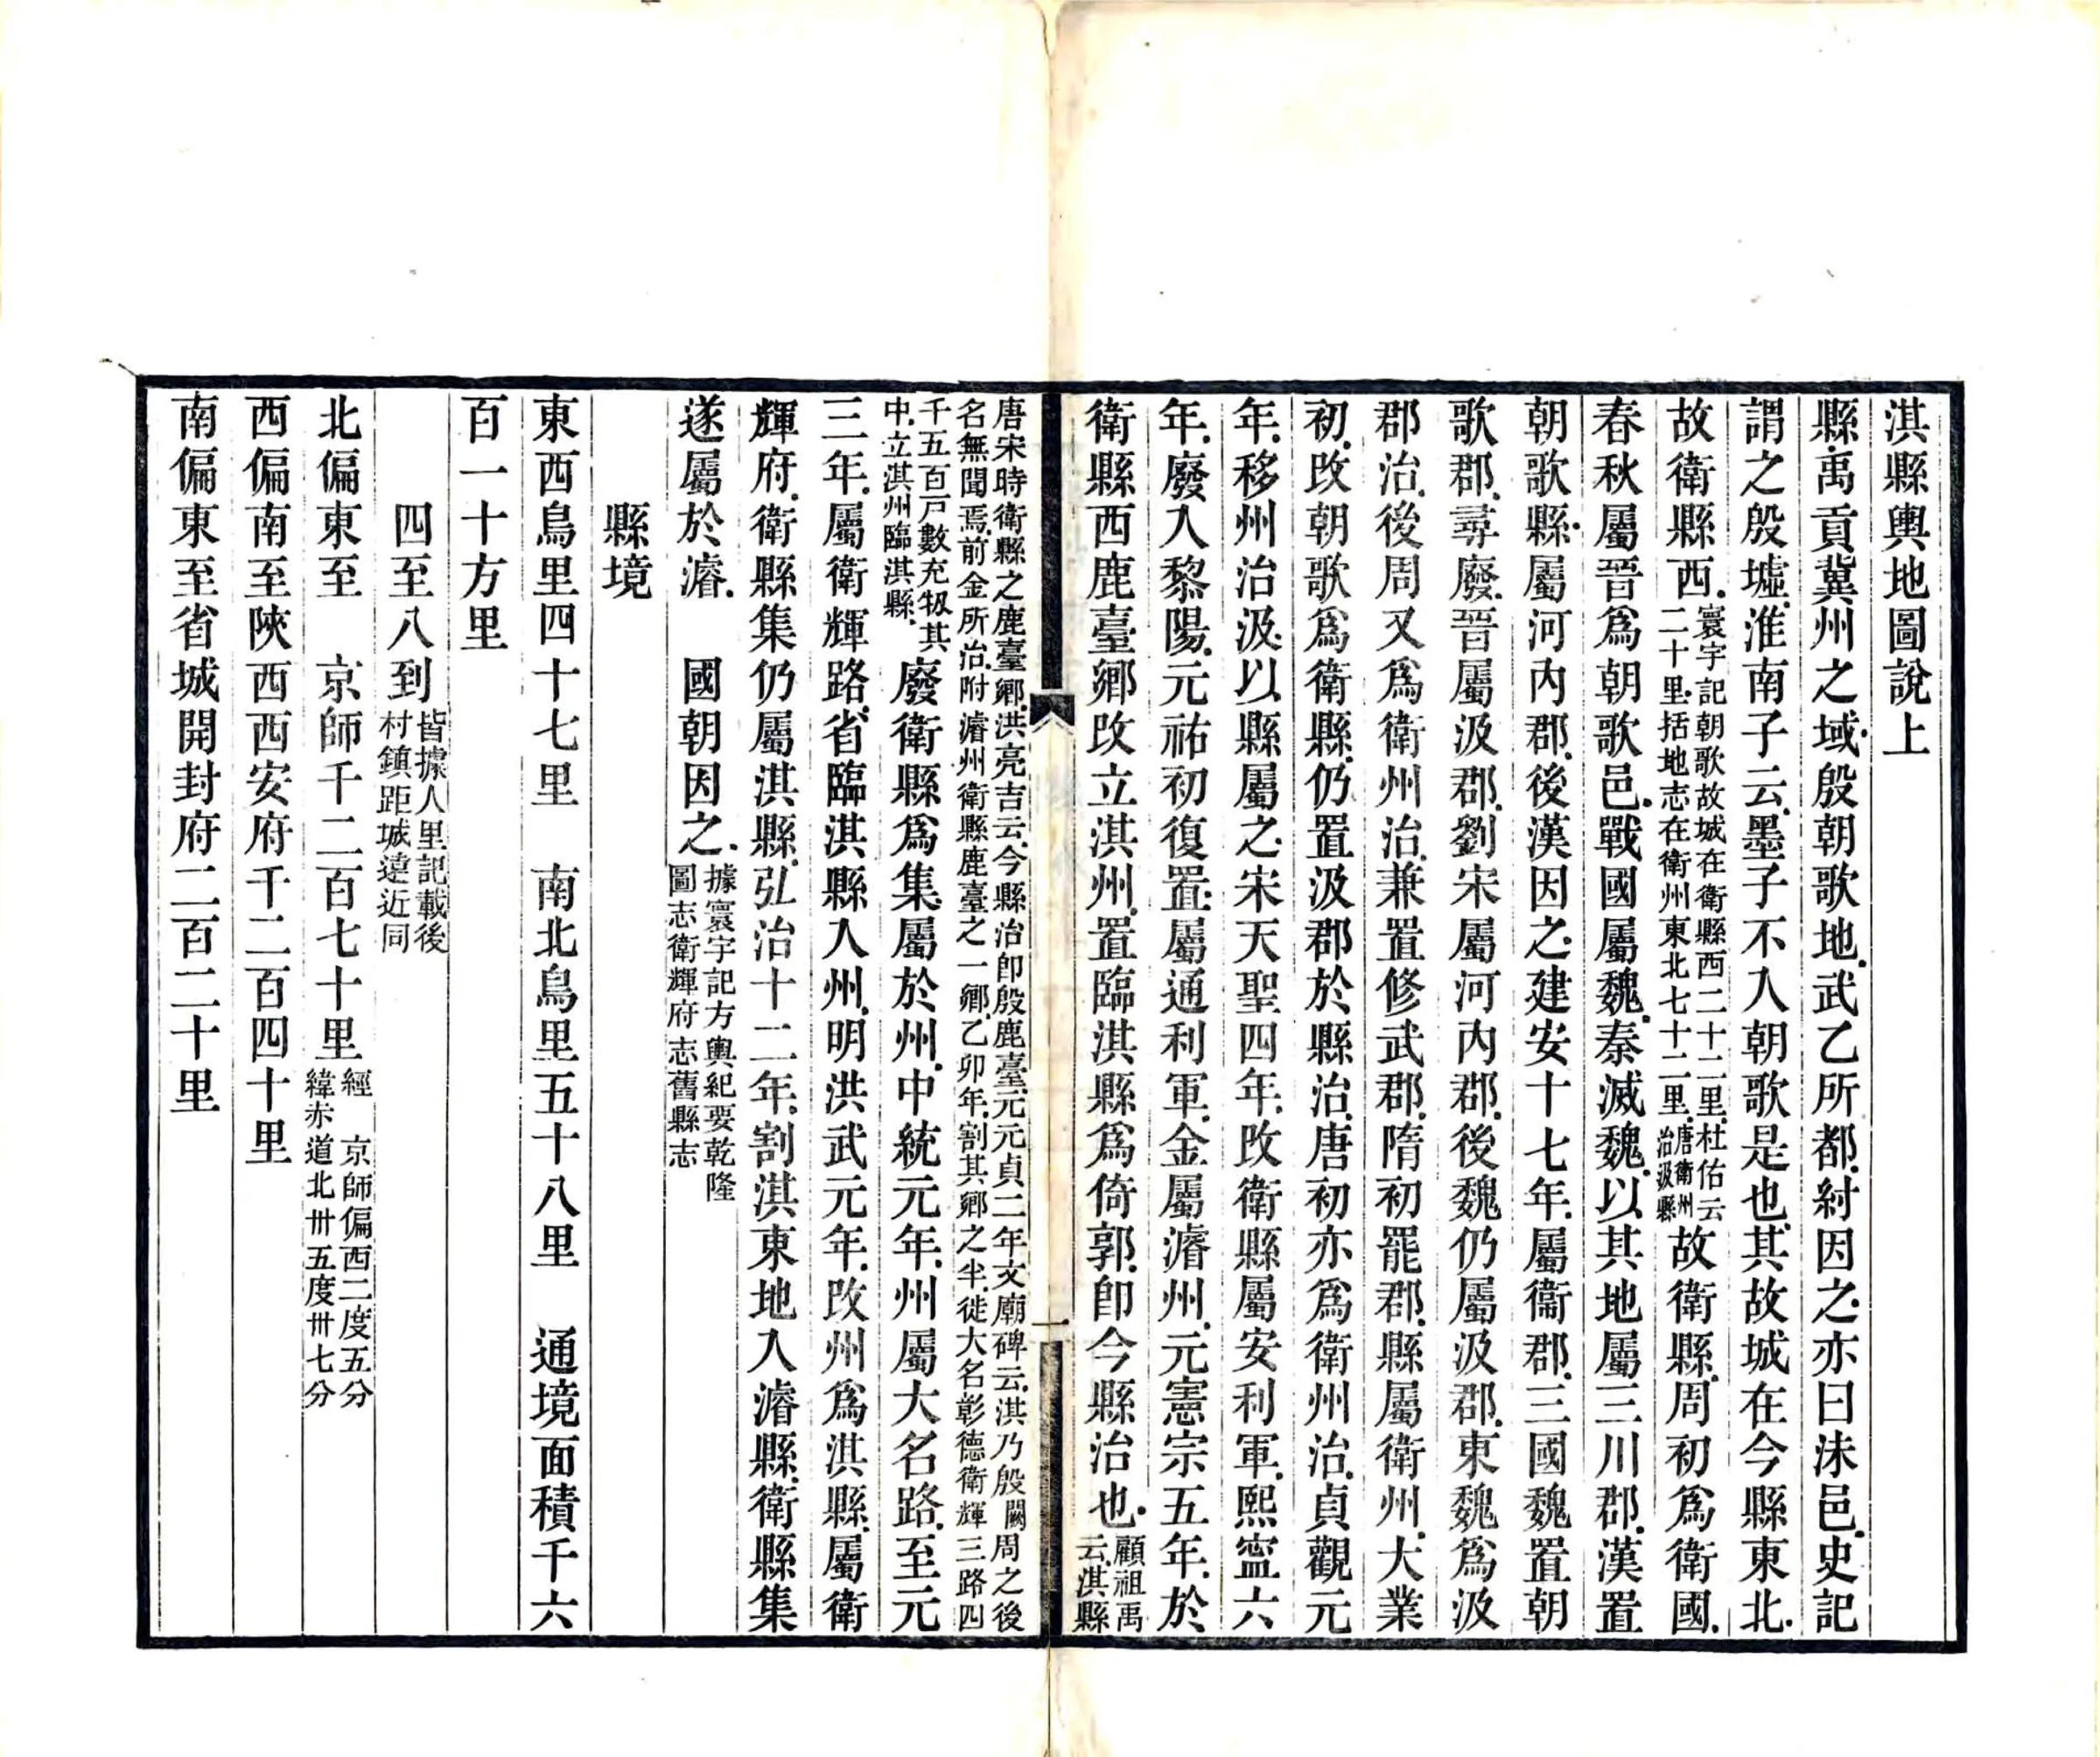 淇縣輿地圖說上
縣禹貢冀州之域殷朝歌地武乙所都紂因之亦曰沬邑史記
謂之殷墟淮南子云墨子不入朝歌是也其故城在今縣東北
故衛縣西寰宇記朝歌故城在衛縣西二十二里杜佑云二十里括地志在衛州東北七十二里唐衛州治汲縣故衛縣周初爲衛國
春秋屬晉爲朝歌邑戰國屬魏秦滅魏以其地屬三川郡漢置
朝歌縣屬河內郡後漢因之建安十七年屬衞郡三國魏置朝
歌郡尋廢晉屬汲郡劉宋屬河內郡後魏仍屬汲郡東魏爲汲
郡治後周又爲衛州治兼置修武郡隋初罷郡縣屬衛州大業
初改朝歌爲衛縣仍置汲郡於縣治唐初亦爲衛州治貞觀元
年移州治汲以縣屬之宋天聖四年改衛縣屬安利軍熙寍六
年廢入黎陽元祐初復置屬通利軍金屬濬州元憲宗五年於
衛縣西鹿臺鄉改立淇州置臨淇縣爲倚郭卽今縣治也顧祖禹云淇縣
一
唐宋時衛縣之鹿臺鄉洪亮吉云今縣治卽殷鹿臺元元貞二年文廟碑云淇乃殷闕周之後
名無聞焉前金所治附濬州衛縣鹿臺之一鄉乙卯年割其鄉之半徙大名彰德衛輝三路四
千五百戸數充牣其中立淇州臨淇縣廢衛縣爲集屬於州中統元年州屬大名路至元
三年屬衛輝路省臨淇縣入州明洪武元年改州爲淇縣屬衛
輝府衛縣集仍屬淇縣弘治十二年割淇東地入濬縣衛縣集
遂屬於濬　國朝因之據寰宇記方輿紀要乾隆圖志衛輝府志舊縣志
縣境
東西鳥里四十七里　南北鳥里五十八里　通境面積千六
百一十方里
四至八到皆據人里記載後村鎮距城遠近同
北偏東至　京師千二百七十里經　京師偏西二度五分緯赤道北卅五度卅七分
西偏南至陝西西安府千二百四十里
南偏東至省城開封府二百二十里